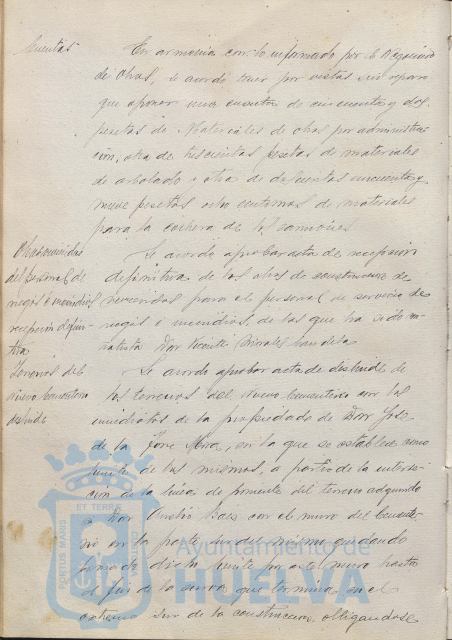 Cuentas
En armonia con lo informado por el Negociado
de Obras, se acordó tener por vistas sin reparo
que oponer una cuenta de cincuenta y dos
pesetas de Materiales de obras por administra
cion, otra de trescientas pesetas de materiales
de arbolado y otra de doscientas cincuenta y
nueve pesetas ocho centimos de materiales
para la cochera de los camiones
Obras viviendas
del personal de
riegos é incendios
recepcion defini-
tiva
Se acordó aprobar acta de recepcion
definitiva de las obras de construccion de
viviendas para el personal de servicio de
riegos é incendios, de las que ha sido con
tratista Don Vicente Morales
Terrenos del
nuevo cementerio
deslinde
Se acordó aprobar acta de deslinde de
los terrenos del Nuevo Cementerio con los
inmediatos de la propiedad de Don José
de la Torre Mora, en la que se establece como
limite de los mismos, a partir de la interse-
cion de la linea de poniente del terreno adquirido
a Don Báez con el muro del Cemente-
rio en la parte sur del mismo quedando
dicho limite por este muro hasta
el fin de la cerca que termina en el
extremo sur de la construccion, obligandose
PORTUS MARIS ET TERRAE CUSTODIA
Ayuntamiento de
HUELVA